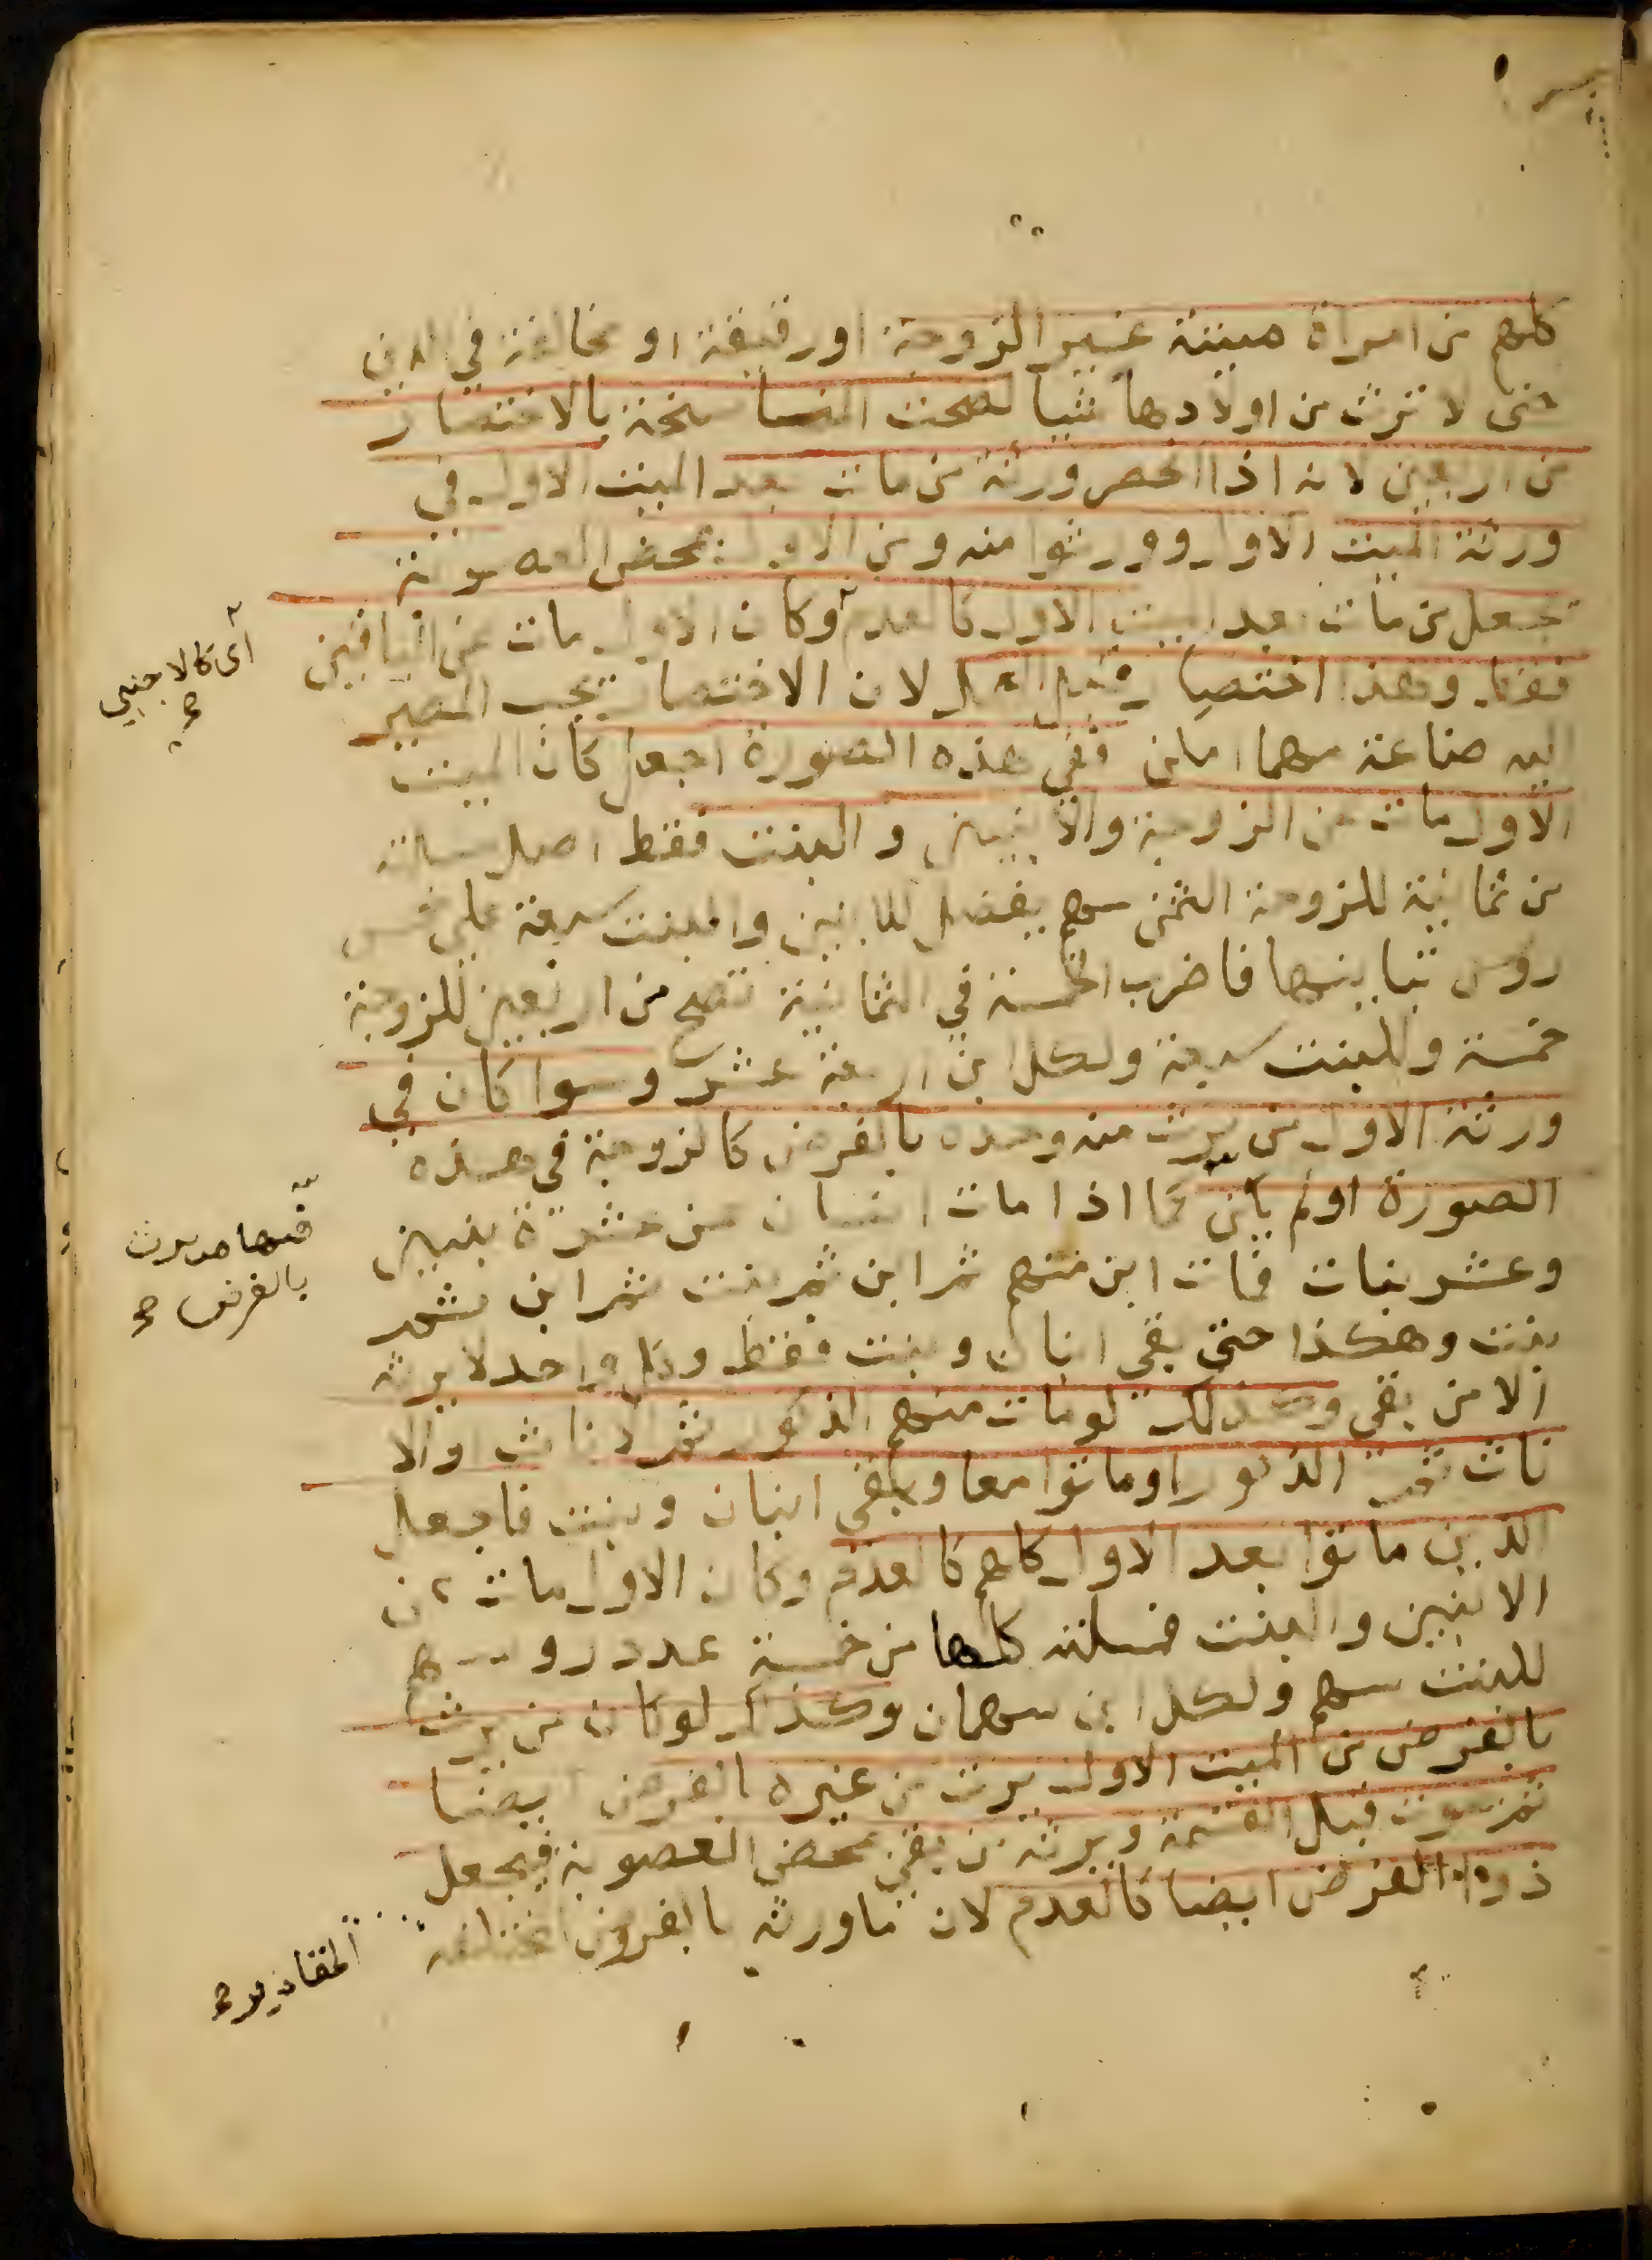 كلهم من امراة ميتة غير الزوجة او رقيقة او مخالفة في الدين
حتى لا ترث من اولادها شيا لصحت المناسخة بالاختصار
من اربعين لانه اذا انحصر ورثة من مات بعد الميت الاول في
ورثة الميت الاول وورثوا منه ومن الاول بمحض العصوبة
تجعل من مات بعد الميت الاول كالعدم وكان الاول مات عن الباقين
فقط وهذا اختصار قبل العمل لان الاختصار يجب المصير
اليه صناعة مهما امكن ففي هذه الصورة اجعل كان الميت
الاول مات عن الزوجة والابنين والبنت فقط اصل مسالته
من ثمانية للزوجة الثمن سهم يفضل للابنين والبنت سبعة على خمس
روس تباينها فاضرب الخمسة في الثمانية تصح من اربعين للزوجة
خمسة وللبنت سبعة ولكل ابن اربعة عشر وسوا كان في
ورثة الاول من يرث منه وحده بالفرض كالزوجة في هذه
الصورة او لم يكن كما اذا مات انسان عن عشرة بنين
وعشر بنات فمات ابن منهم ثم ابن ثم بنت ثم ابن ثم
بنت وهكذا حتى بقي ابنان وبنت فقط وكل واحد لا يرثه
الا من بقي وكذلك لو مات منهم الذكور ثم الاناث او الا
ناث ثم الذكور او ماتوا معا وبقي ابنان وبنت فاجعل
الذين ماتوا بعد الاول كلهم كالعدم وكان الاول مات عن
الابنين والبنت فمسالته كلها من خمسة عدد روسهم
للبنت سهم ولكل ابن سهمان وكذا لو كان من يرث
بالفرض من الميت الاول يرث من غيره بالفرض ايضا
ثم يموت قبل القسمة ويرثه من بقي بمحض العصوبة فيجعل
ذوا الفرض ايضا كالعدم لان ما ورثه بالفروض المختلفة
اى كالاجنبي
صح
فيها من يرث
بالفرض صح
المقادير صح